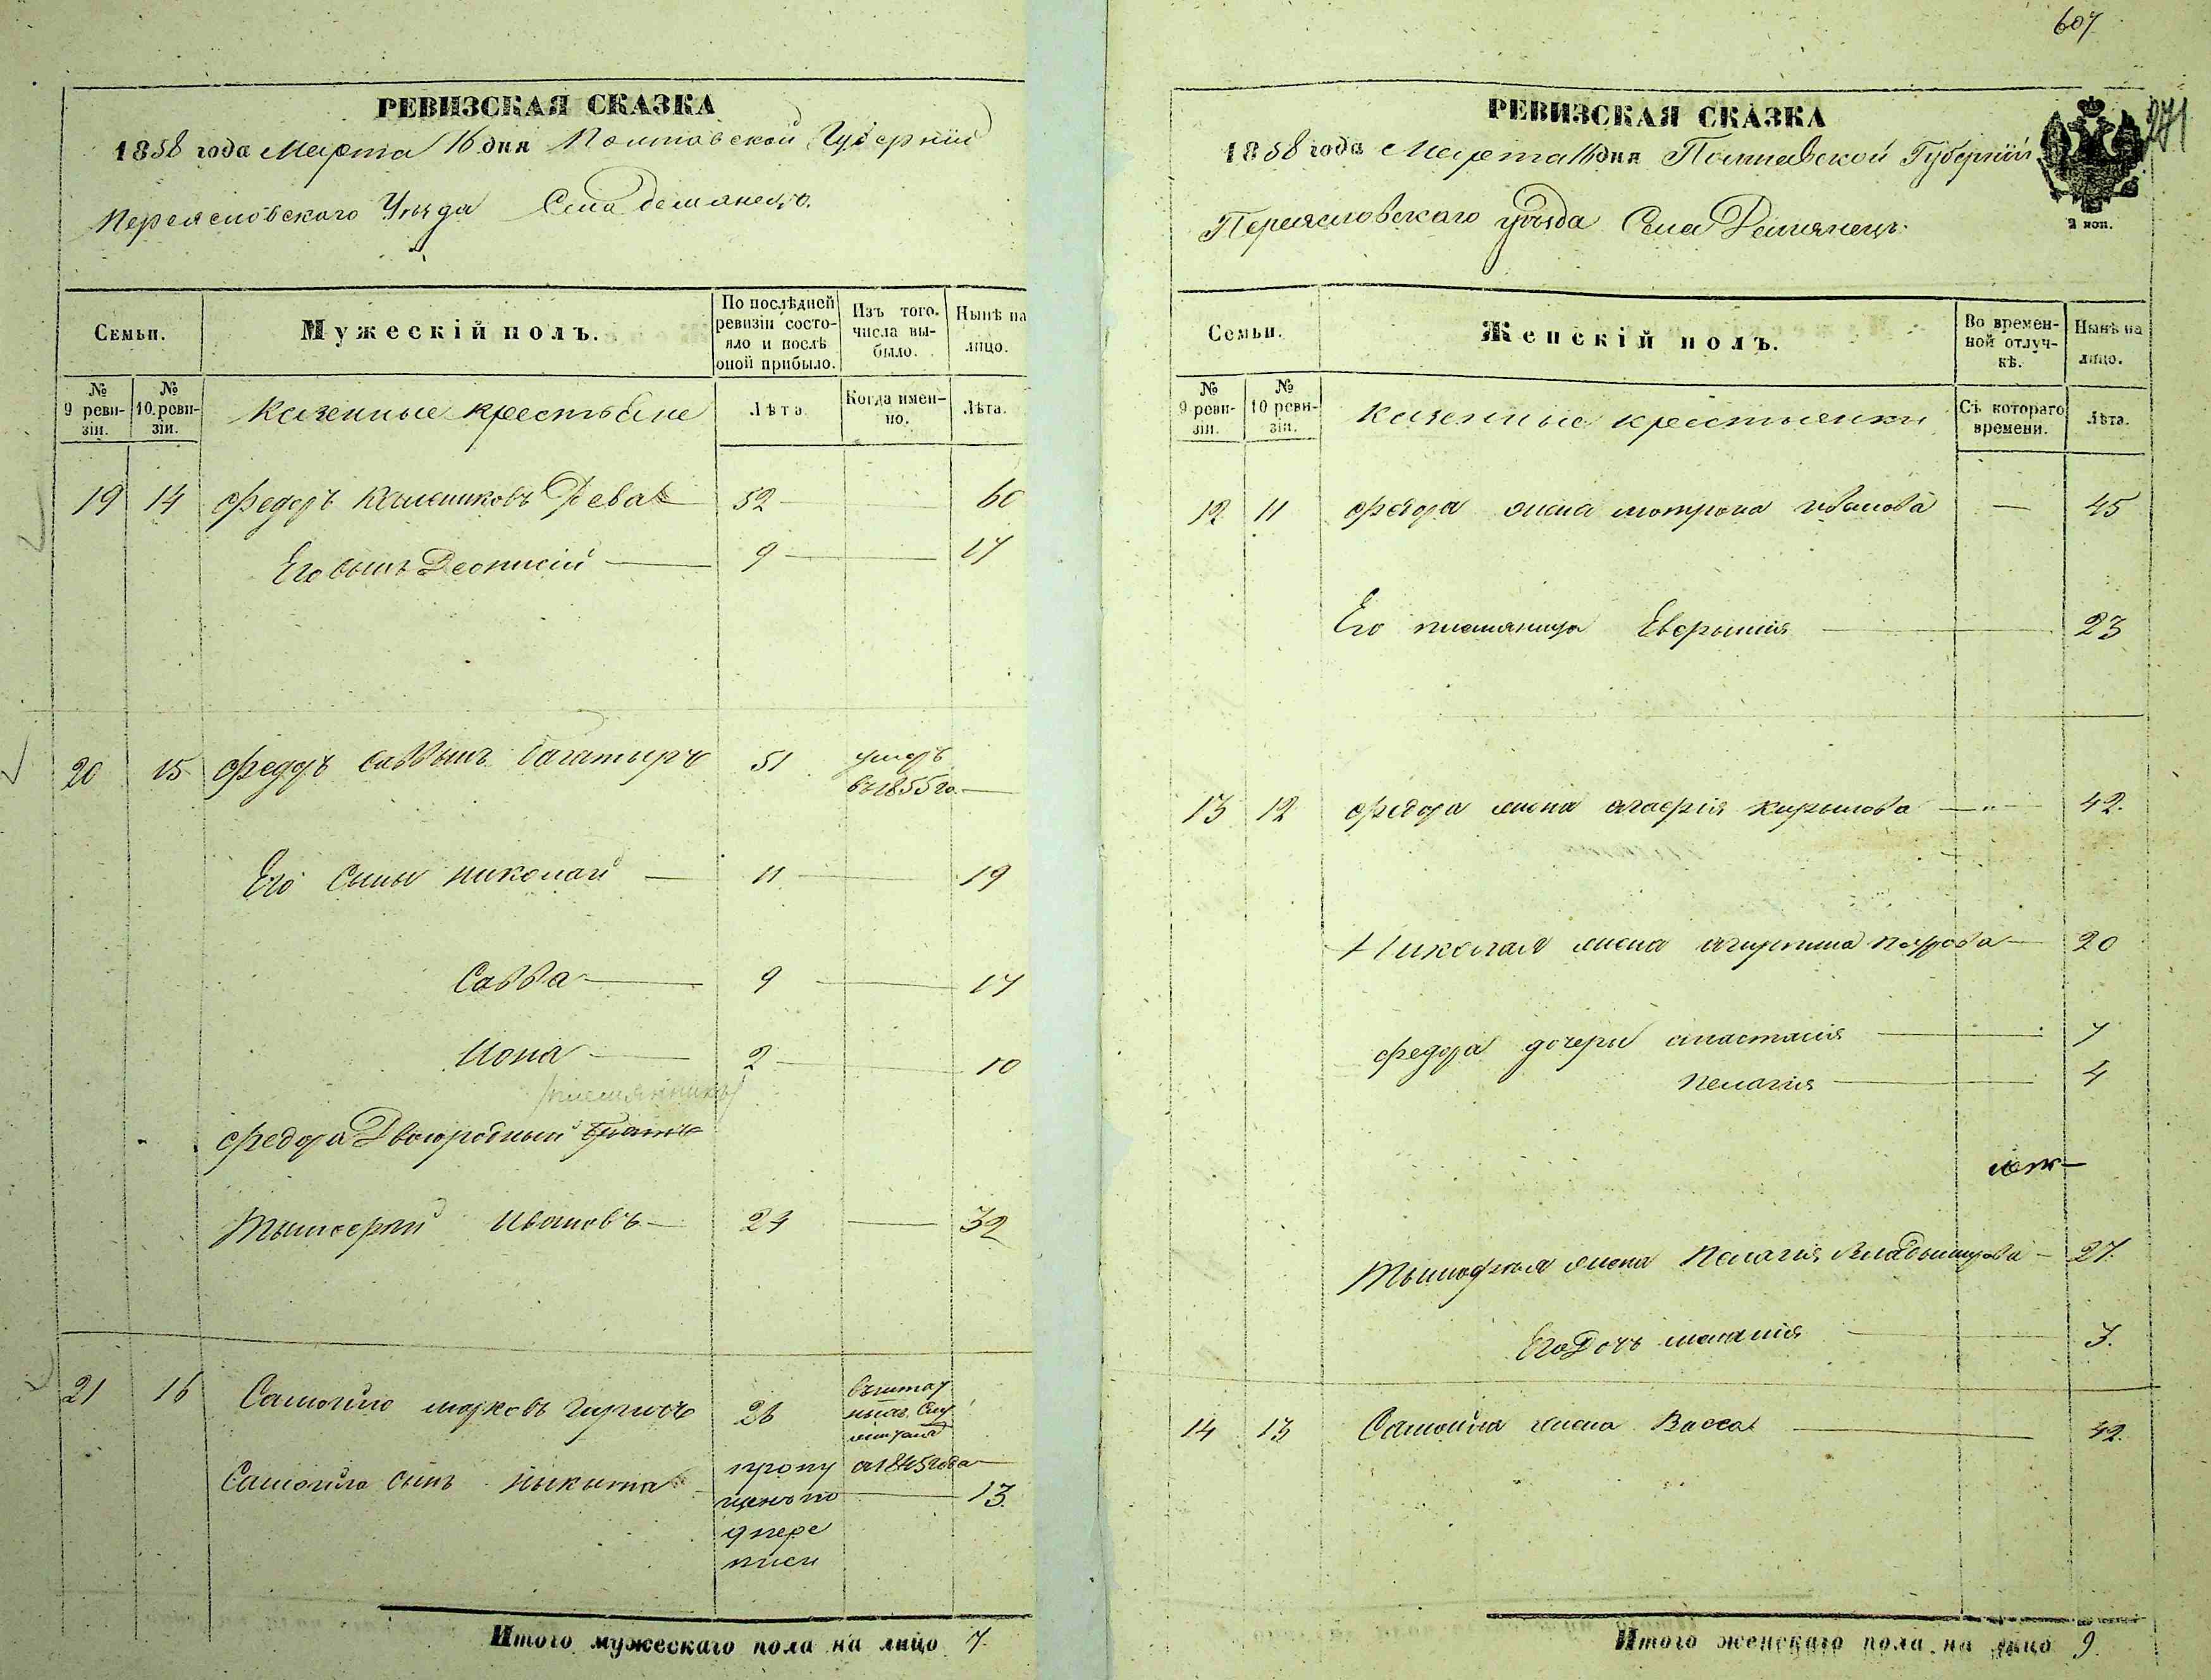 РЕВИЗСКАЯ СКАЗКА
1858 года Марта 16 дня Полтавской Губерніи
Переясловскаго Уѣзда Села демянецъ.
Семьи.
Мужескій полъ.
По послѣдней ревизіи состояло и послѣ оной прибыло.
Изъ того числа выбыло.
Нынѣ на лицо.
№ 9 ревизіи.
№ 10. ревизіи.
Казенные крестьяне
Лѣта.
Когда именно.
Лѣта.
19 14 Федоръ Калениковъ Рева 52 — 60
Его сынъ Деонисій — 9 — 17
20 15 Федоръ Саввынъ багатыръ 51 умеръ
въ 1855 го. —
Его Сыны николай — 11 — 19
Савва — 9 — 17
Иона — 2 — 10
племянникъ
Федора Двоюродный братъ
Тымофѣй Ивановъ — 24 — 32
21 16 Самойло марковъ 26
Самойла сынъ Никита 13.
пропу
щенъ по
9 пере
писи
съ 1845 года —
Итого мужескаго пола на лицо 7.
607
271
РЕВИЗСКАЯ СКАЗКА
1858 года Марта 16 дня Полтавской Губерніи
Переясловскаго уѣзда Села Демянецъ.
2 коп.
Семьи.
Женскій полъ.
Во временной отлучкѣ.
Нынѣ на лицо.
№ 9 ревизіи.
№ 10 ревизіи.
Казенные крестьянки
Съ котораго времени.
Лѣта.
12 11 Федора жена мотрона иванова — 45
Его племяница Евфрышия — 23
13 12 Федора жена агафія кирылова — " — 42.
Николая жена агрипина петрова — 20
Федора дочери анастасія — 7
пелагия — 4
Тымофѣя жена Пелагия Владымирова — 27.
Его Дочъ маланія — 3.
14 13 Самойла жена Васса — 42.
Итого женскаго пола на лицо 9.